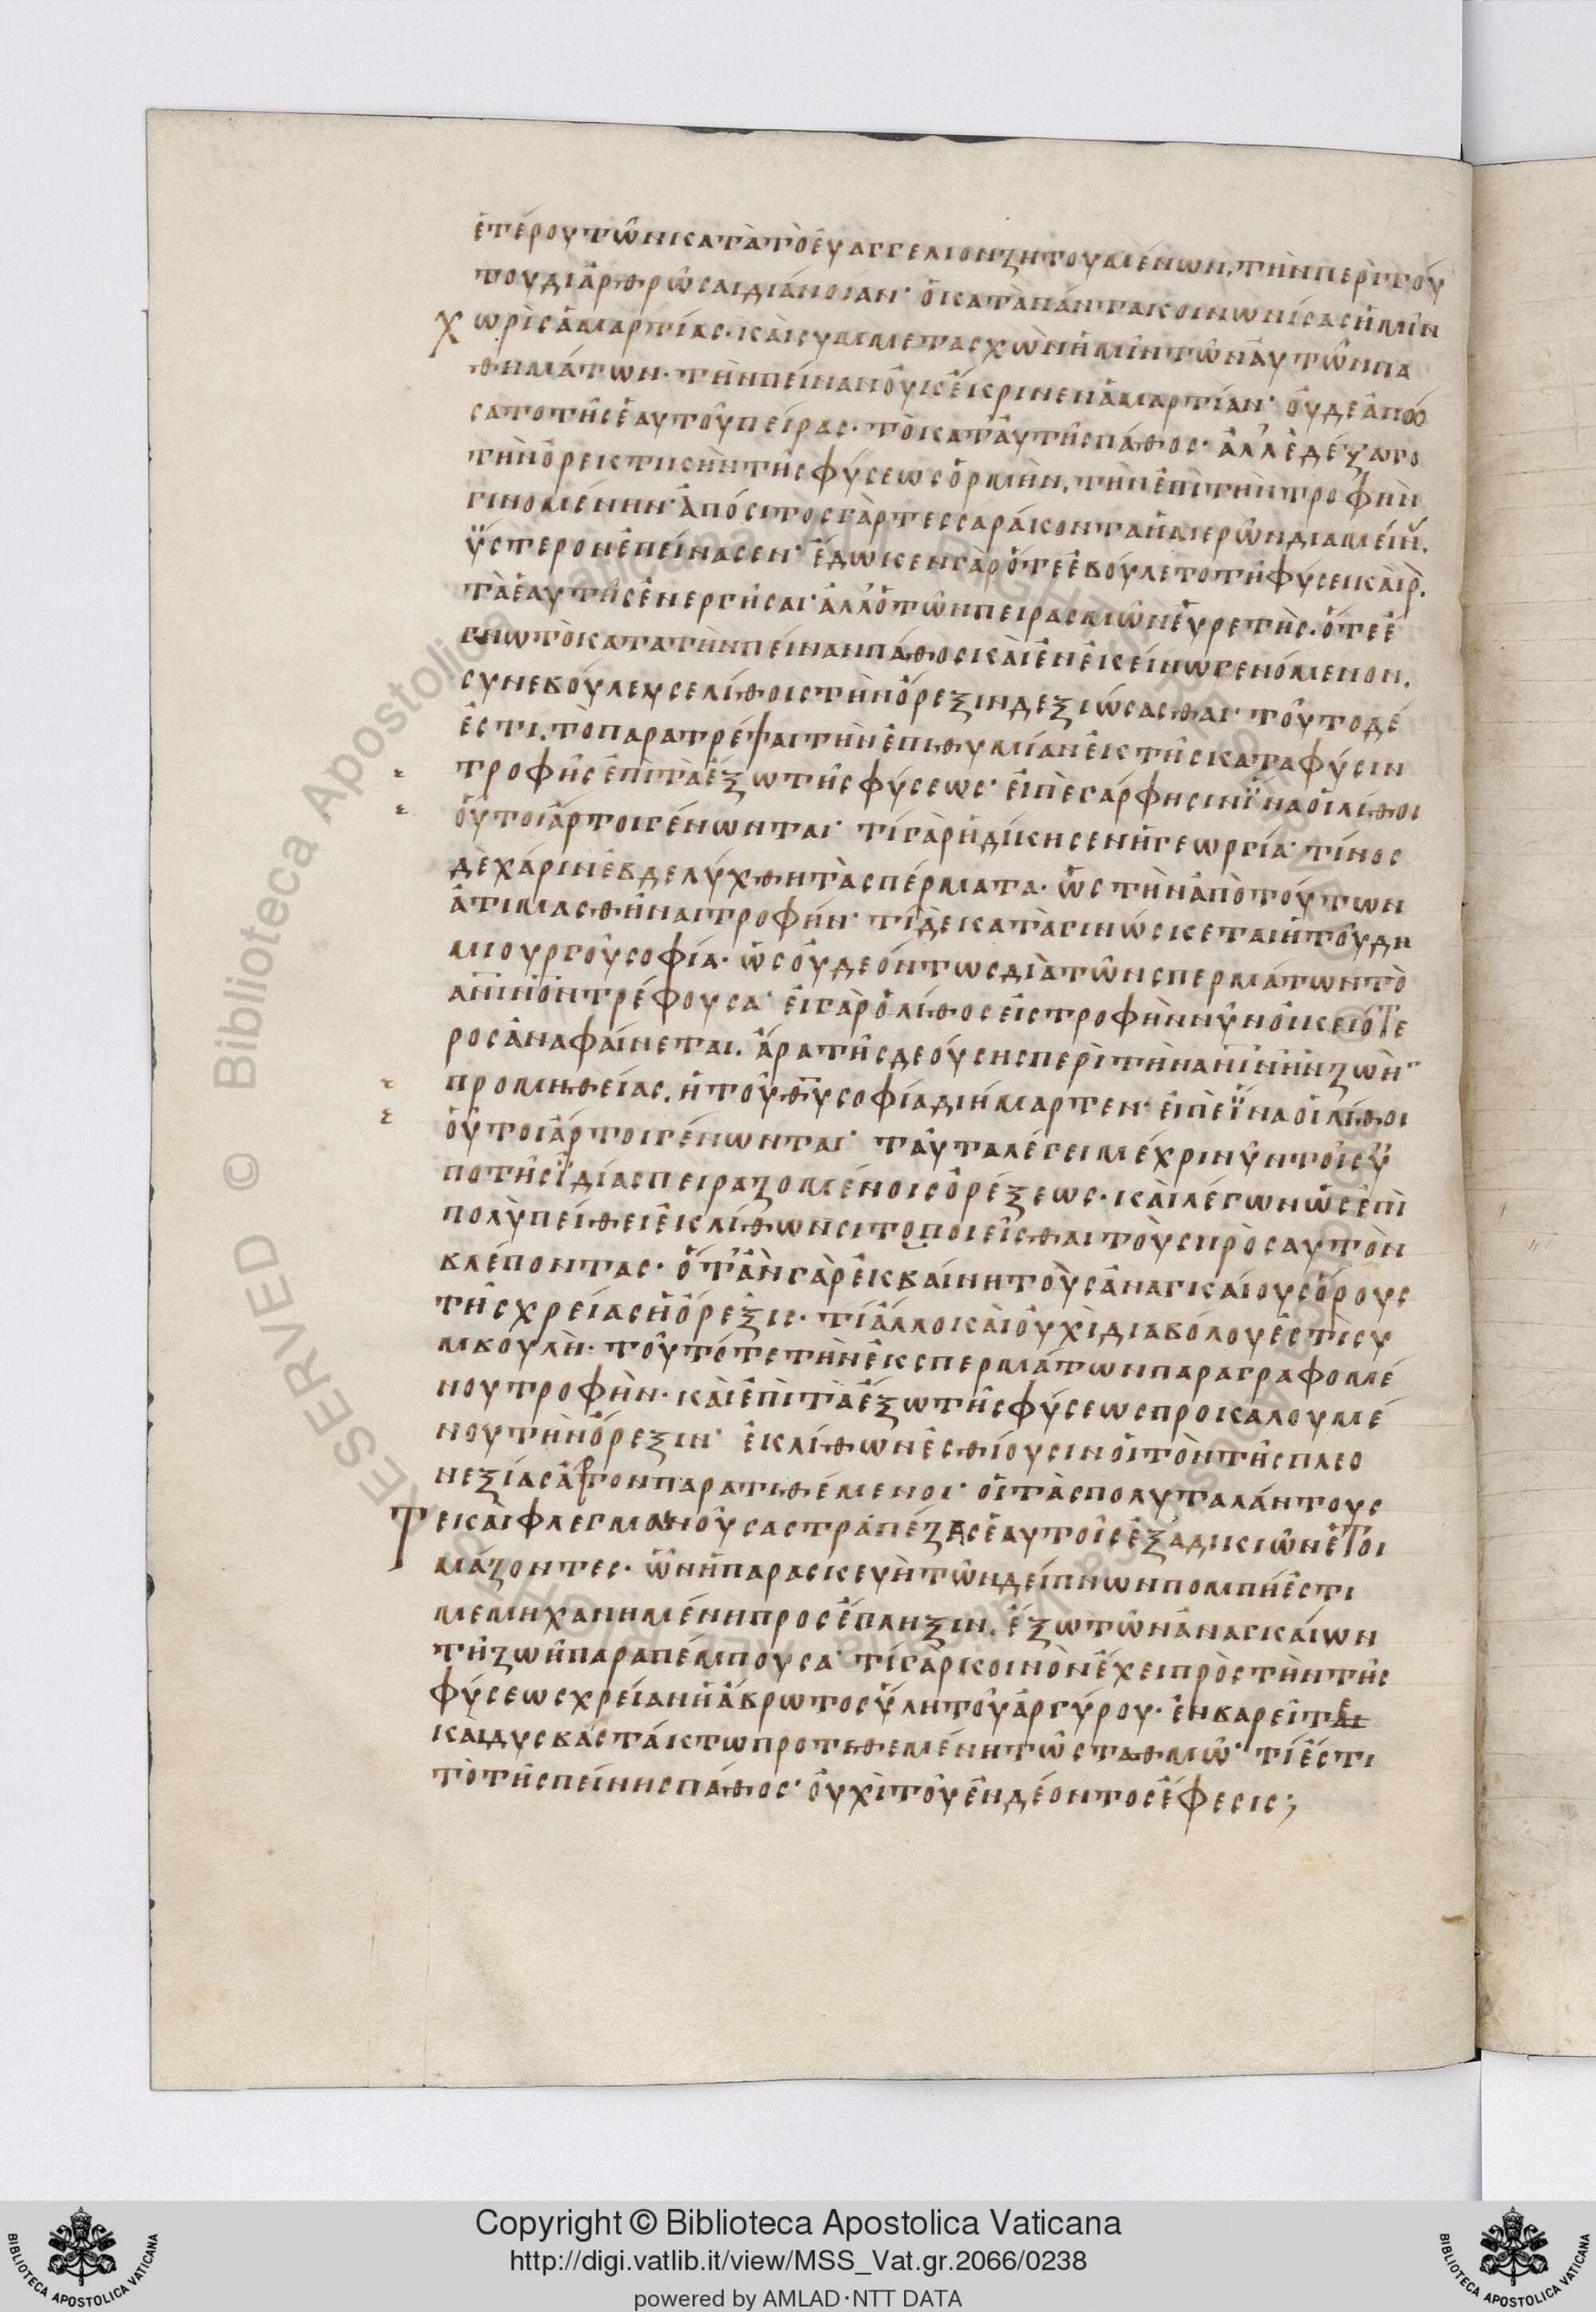 ἑτέρου τῶν κατὰ τὸ εὐαγγέλιον ζητουμένων, τὴν περὶ τού
του διαρθρῶσαι διάνοιαν· ὁ κατὰ πάντα κοινωνήσας ἡμῖν
χωρὶς ἁμαρτίας· καὶ συμμετασχὼν ἡμῖν τῶν αὐτῶν πα
θημάτων· τὴν πείναν οὐκ ἔκρινεν ἁμαρτίαν· οὐδὲ ἀπώ
σατο τῆς ἑαυτοῦ πείρας· τὸ κατ' αὐτῆς πάθος· ἀλλ' ἐδέξατο
τὴν ὀρεκτικὴν τῆς φύσεως ὁρμὴν, τὴν ἐπὶ τὴν τροφὴν
γινομένην· ἀπόσιτος γὰρ τεσσαράκοντα ἡμερῶν διαμείν.
ὕστερον ἐπείνασεν· ἔδωκεν γὰρ ὅτε ἐβούλετο τῆ φύσει καιρ.
τὰ ἑαυτῆς ἐνεργῆσαι· ἀλλ' ὁ τῶν πειρασμῶν εὑρετὴς· ὅτε ἔ
γνω τὸ κατα τὴν πείναν πάθος καὶ ἐν ἐκείνω γενόμενον,
συνεβούλευσε λίθοις τὴν ὄρεξιν δεξιώσασθαι· τοῦτο δέ
ἐστι, τὸ παρατρέψαι τὴν ἐπιθυμίαν ἐκ τῆς κατα φύσιν
τροφῆς ἐπὶ τὰ ἔξω τῆς φύσεως· εἰπὲ γάρ φησιν ἵνα οἱ λίθοι
οὗτοι ἄρτοι γένωνται· τί γὰρ ἠδίκησεν ἡ γεωργία· τίνος
δὲ χάριν ἐβδελύχθη τὰ σπέρματα· ὡς τὴν ἀπὸ τούτων
ἀτιμασθῆναι τροφήν· τί δὲ καταγινώσκεται ἡ τοῦ δη
μιουργοῦ σοφία· ὡς οὐ δεόντως διὰ τῶν σπερμάτων τὸ
ἀνινον τρέφουσα· εἰ γὰρ ὁ λίθος εἰς τροφὴν νῦν οἰκειότε
ρος ἀναφαίνεται, ἄρα τῆς δεούσης περὶ τὴν ἀνινην ζωὴν
προμηθείας, ἡ τοῦ θυ σοφία διήμαρτεν· εἰπὲ ἵνα οἱ λίθοι
οὗτοι ἄρτοι γένωνται· ταῦτα λέγει μέχρι νῦν τοῖς ὑ
πο τῆς ἰδίας πειραζομένοις ὀρέξεως· καὶ λέγων ὡς ἐπὶ
πολὺ πείθει ἐκ λίθων σιτοποιεῖσθαι τοὺς πρὸς αυτὸν
βλέποντας· ὅτ' ἂν γὰρ ἐκβαίνη τοὺς ἀναγκαίους ὅρους
τῆς χρείας ἡ ὄρεξις· τί ἄλλο καὶ οὐχὶ διαβόλου ἐστὶ συ
μβουλὴ· τοῦτό τε τὴν ἐκ σπερμάτων παραγραφομέ
νου τροφὴν· καὶ ἐπὶ τὰ ἔξω τῆς φύσεως προκαλουμέ
νου τὴν ὄρεξιν· ἐκ λίθων ἐσθίουσιν οἱ τὸν τῆς πλεο
νεξίας ἄρτον παρατιθέμενοι· οἱ τὰς πολυταλάντους
τε καὶ φλεγμαινούσας τραπέζας ἑαυτοῖς ἐξ αδικιῶν ἑτοι
μάζοντες· ὧν ἡ παρασκευὴ τῶν δείπνων πομπή ἐστι
μεμηχανημένη προς ἔπληξιν, ἔξω τῶν ἀναγκαίων
τῆ ζωῆ παραπέμπουσα· τί γὰρ κοινὸν ἔχει πρὸς τὴν τῆς
φύσεως χρείαν ἡ ἄβρωτος ὕλη τοῦ ἀργύρου· ἐν βαρεῖ τε
και δυσβαστάκτω προτιθεμένη τῶ σταθμῶ· τί ἐστι
τὸ τῆς πείνης πάθος· οὐχὶ τοῦ ἐνδέοντος ἔφεσις;
Copyright © Biblioteca Apostolica Vaticana
http://digi.vatlib.it/view/MSS_Vat.gr.2066/0238
powered by AMLAD·NTT DATA